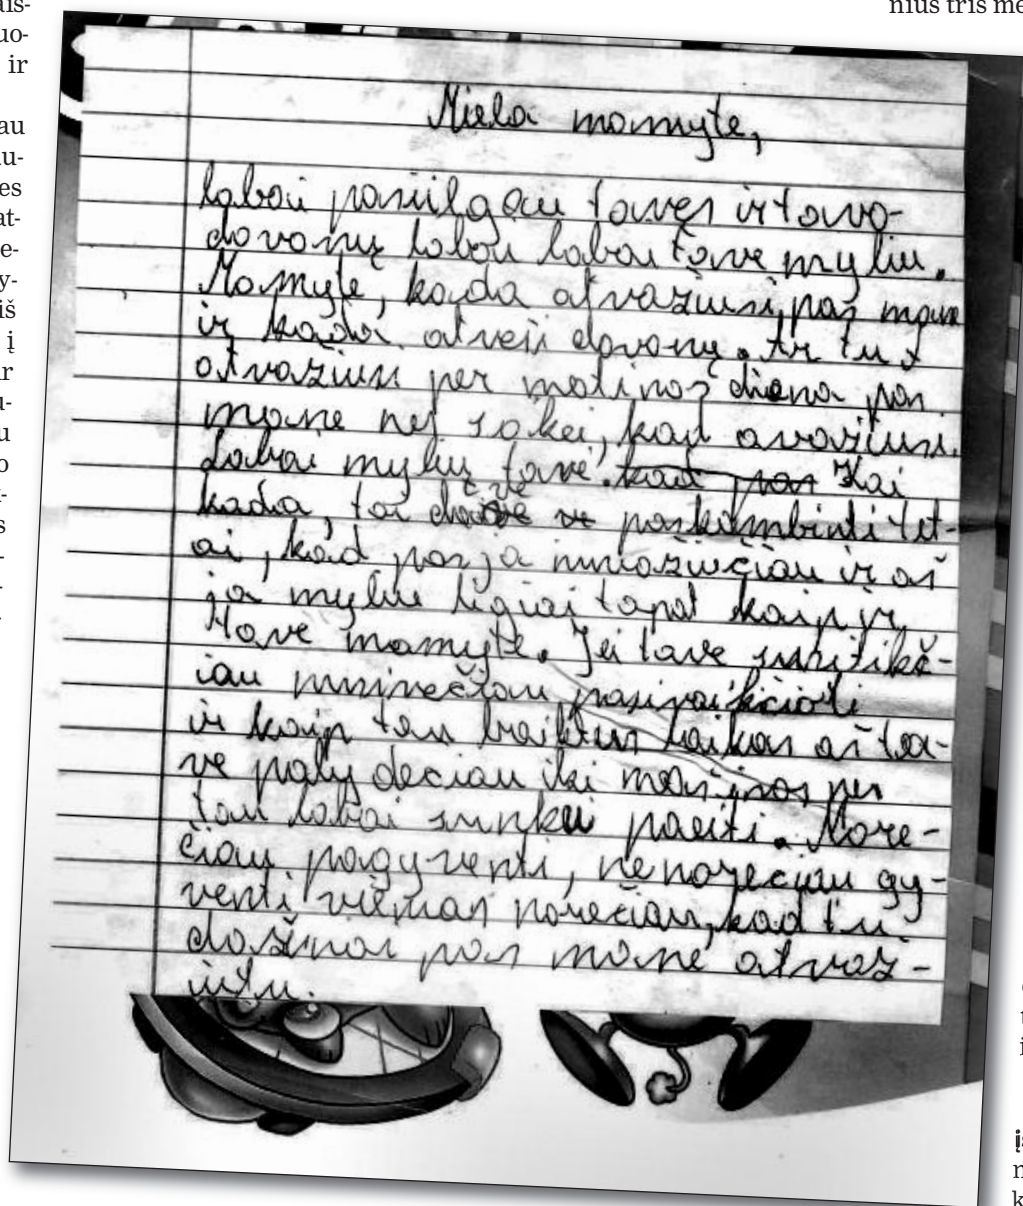 nius tris me
ais-
uo-
ir
au
es
at-
e-
y-
iš
į
u
o
s
Miela mamyte,
labai pasiilgau tavęs ir tavo
dovanų labai labai tave myliu.
Mamyte, kada atvažiusi pas mane
ir kada atveši dovanų. Ar tu
atvažiusi per motinos diena pas
mane nej sakei, kad avažiusi.
Labai myliu tave. kad pas Kai
kada, toi paskambinti tet-
ai, kad pas ja nuvažiučiau ir aš
ja myliu ligiai tapat kaip ir
tave mamyte. Jei tave susitikč-
iau nusivesčiau pasivaikščioti
ir kaip ten baiktus laikas aš ta-
ve palydeciau iki mašinos per
tau labai sunku paeiti. Nore-
čiau pagyventi, nenorečiau gy-
venti vienas norečiau, kad tu
dažnai pas mane atvaž-
iutu.